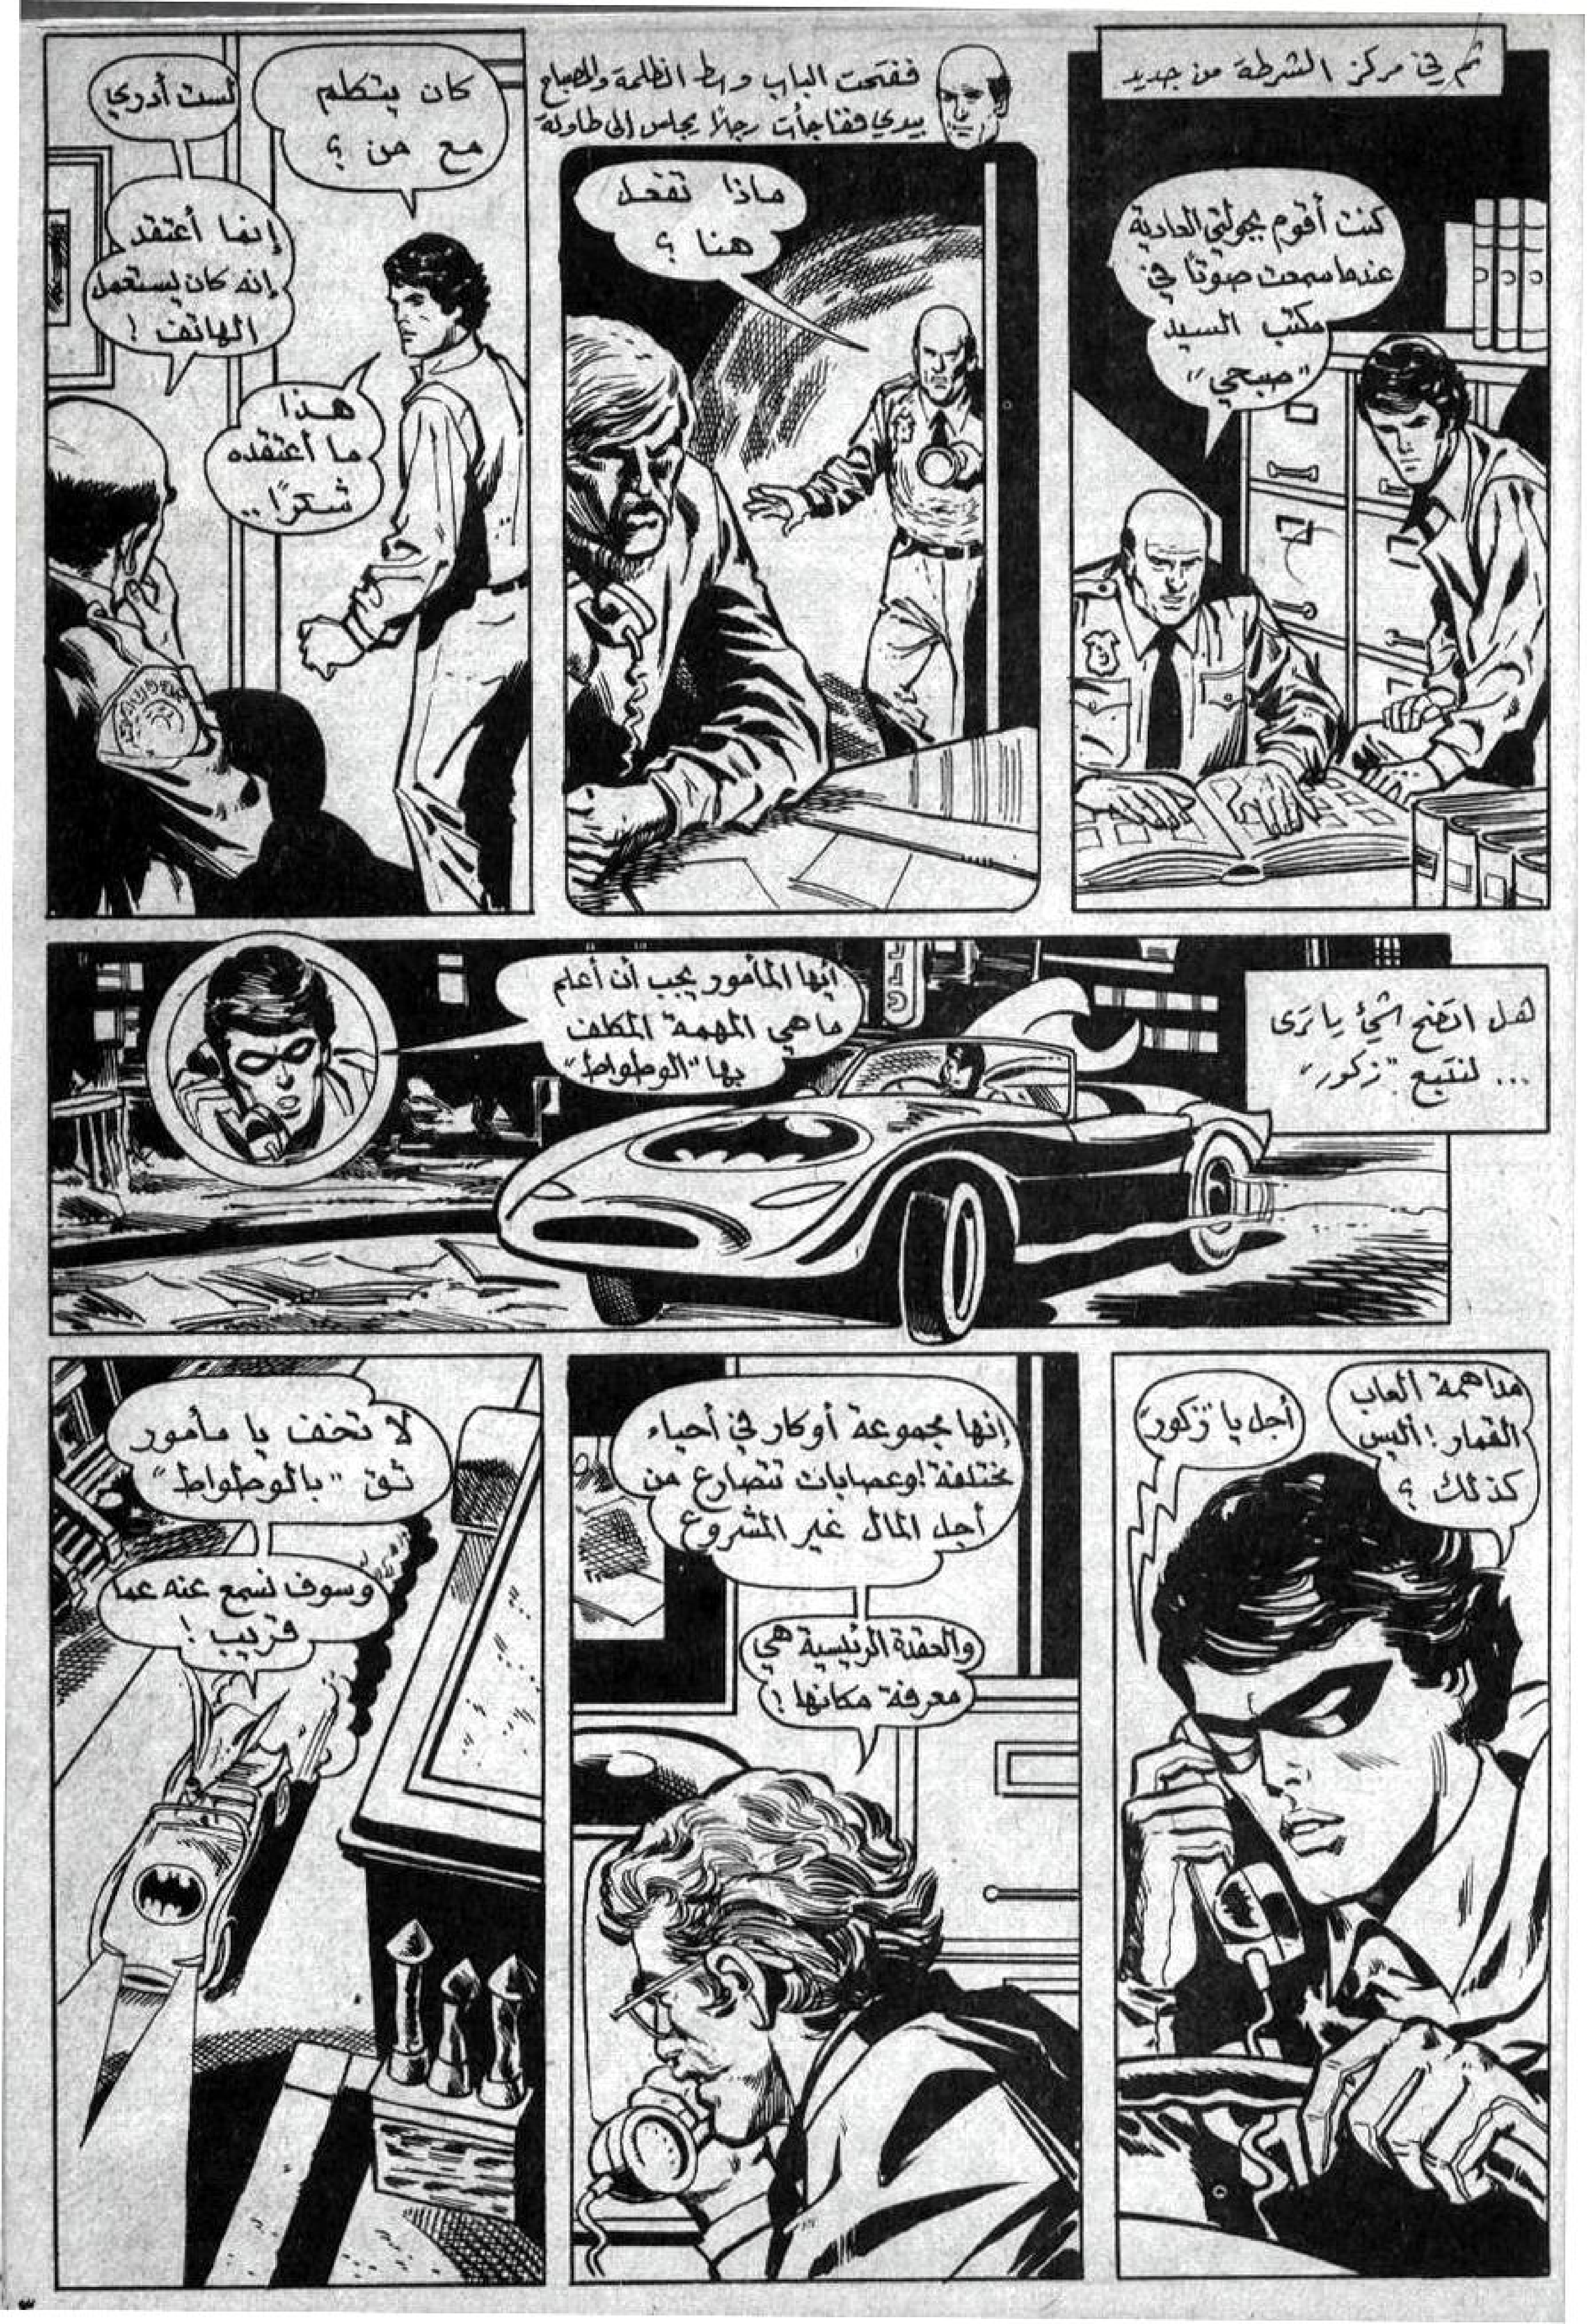 ثم في مركز الشرطة من جديد
كنت أقوم بجولتي العادية
عندما سمعت صوتًا في
مكتب السيد
"صبحي"
ففتحت الباب وسط الظلمة والمصباح
بيدي ففاجأت رجلًا يجلس إلى طاولة
ماذا تفعل
هنا ؟
كان يتكلم
مع من ؟
لست أدري
إنما أعتقد
إنه كان يستعمل
الهاتف !
هذا
ما أعتقده
شكرًا ..
هل اتضح شيْ يا ترى
... لنتبع "زكور"
أيها المأمور يجب أن أعلم
ما هي المهمة المكلف
بها "الوطواط"
مداهمة العاب
القمار ! أليس
كذلك ؟
أجل يا "زكور"
إنها مجموعة أوكار في أحياء
مختلفة ! وعصابات تتصارع من
أجل المال غير المشروع
والعقدة الرئيسية هي
معرفة مكانها !
لا تخف يا مأمور
ثق "بالوطواط"
وسوف نسمع عنه عما
قريب !
٣